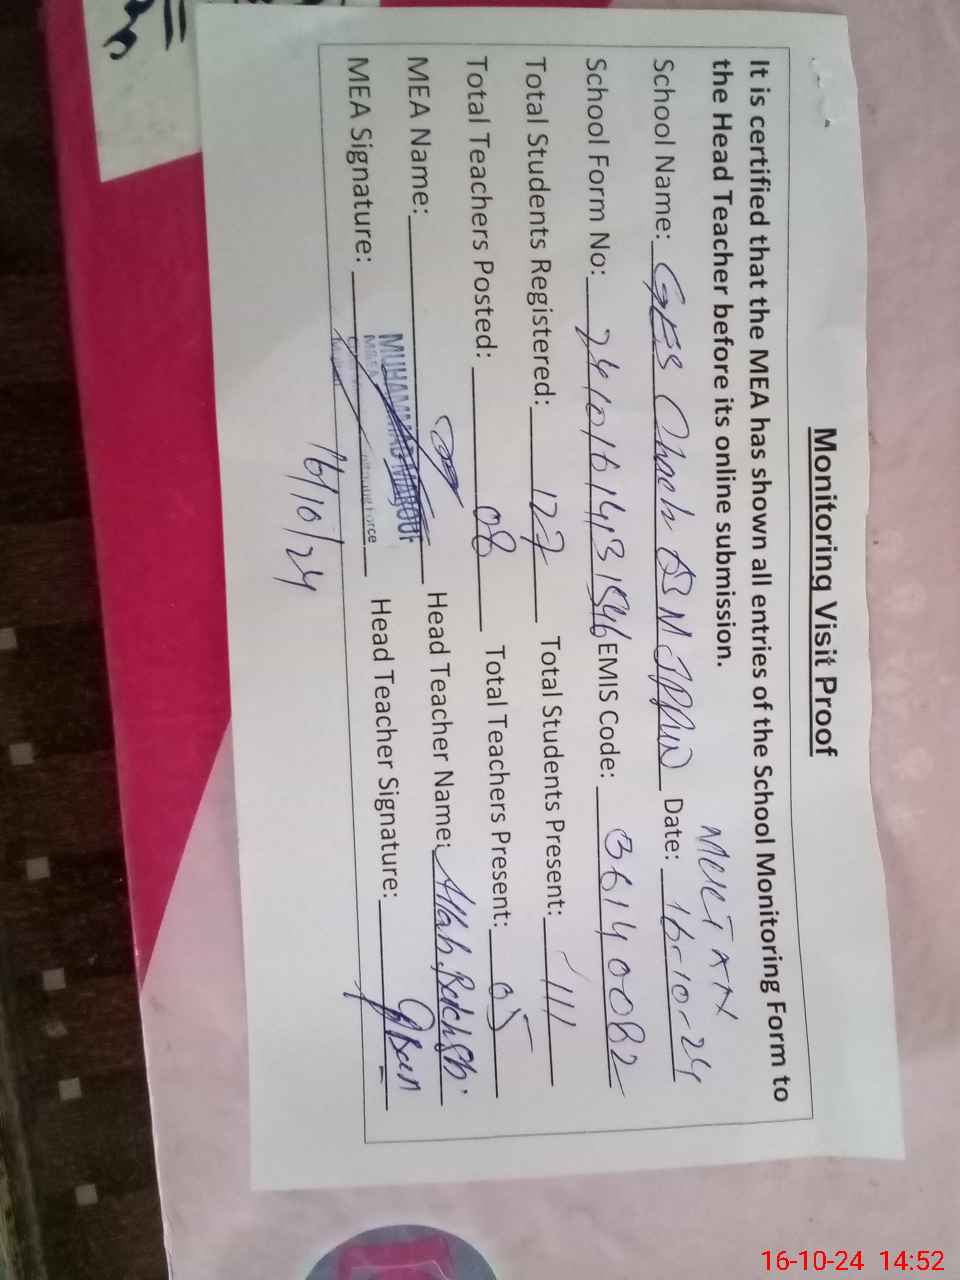 Monitoring Visit Proof
It is certified that the MEA has shown all entries of the School Monitoring Form to
the Head Teacher before its online submission.
MULTAN
School Name: GES Chack Date: 16-10-24
School Form No: EMIS Code: 36140082
Total Students Registered: 127 Total Students Present: 111
Total Teachers Posted: 08 Total Teachers Present: 05
MEA Name: MUHAMMAD MAROUF Head Teacher Name: Allah
MEA Signature: Head Teacher Signature:
16/10/24
16-10-24 14:52